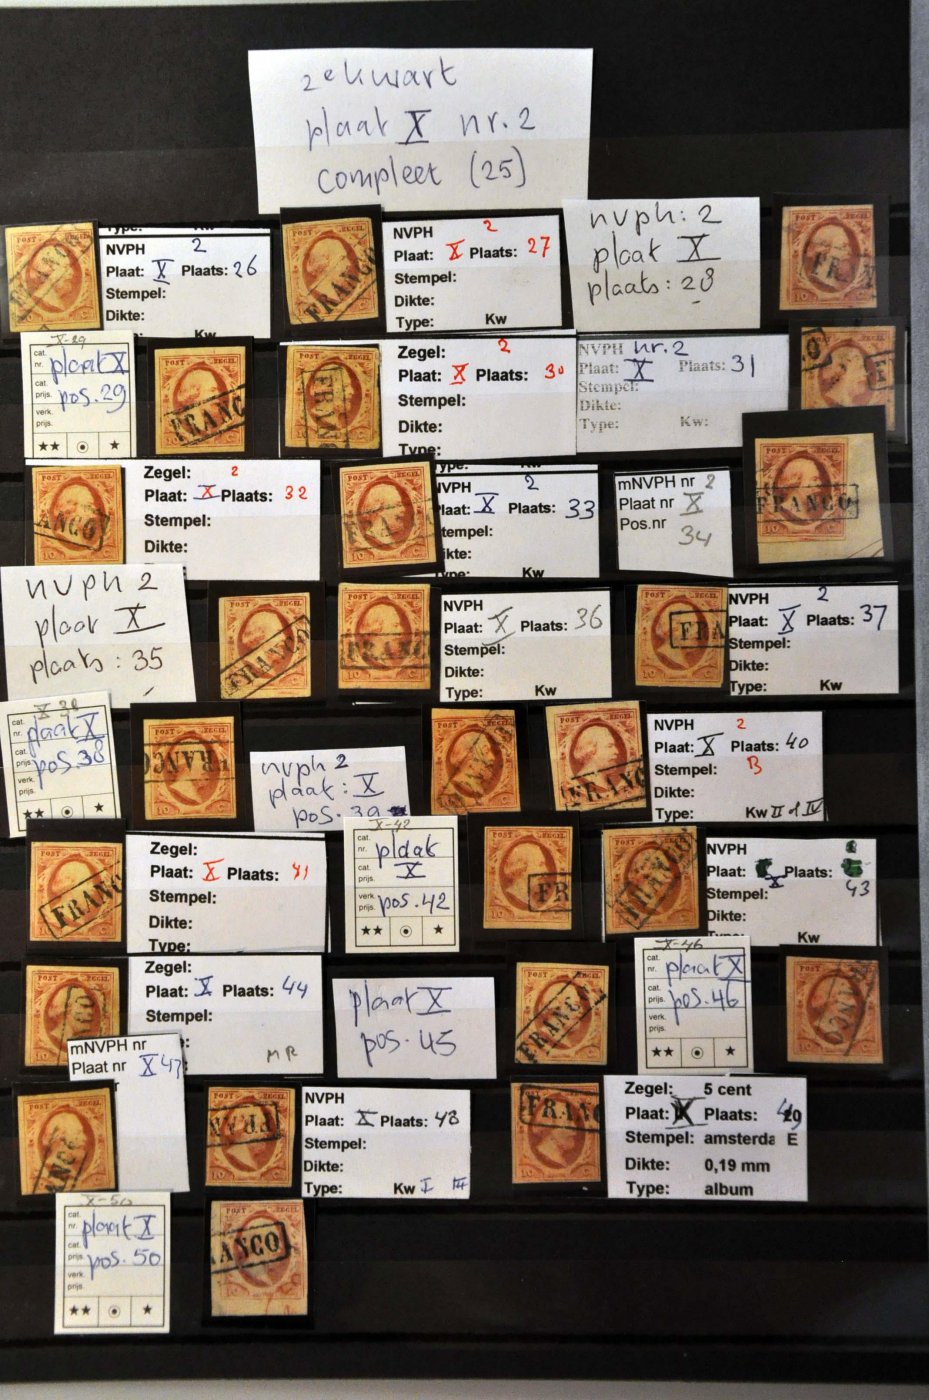 2e kwart
plaat X nr. 2
compleet (25)
Type: Kw
NVPH 2
Plaat: X Plaats: 26
Stempel:
Dikte:
NVPH 2
Plaat: X Plaats: 27
Stempel:
Dikte:
Type: Kw
nvph: 2
plaat X
plaats: 28
POST ZEGEL
FRANCO
X-29
cat. nr. plaat X
cat. prijs. pos. 29
verk. prijs.
POST ZEGEL
FRANCO
Zegel: 2
Plaat: X Plaats: 30
Stempel:
Dikte:
Type:
NVPH nr. 2
Plaat: X Plaats: 31
Stempel:
Dikte:
Type: Kw:
Zegel: 2
Plaat: X Plaats: 32
Stempel:
Dikte:
Type: Kw
NVPH 2
Plaat: X Plaats: 33
Stempel:
Dikte:
Type: Kw
mNVPH nr 2
Plaat nr X
Pos.nr 34
FRANCO
nvph 2
plaat X
plaats: 35
FRANCO
NVPH
Plaat: X Plaats: 36
Stempel:
Dikte:
Type: Kw
NVPH 2
Plaat: X Plaats: 37
Stempel:
Dikte:
Type: Kw
X-38
cat. nr. plaat X
cat. prijs. pos. 38
verk. prijs.
nvph 2
plaat: X
pos. 39
NVPH 2
Plaat: X Plaats: 40
Stempel: B
Dikte:
Type: Kw II of IV
Zegel:
Plaat: X Plaats: 41
Stempel:
Dikte:
Type:
X-42
cat. nr. plaat X
cat. prijs.
verk. prijs. pos. 42
NVPH
Plaat: X Plaats: 43
Stempel:
Dikte:
Kw
Zegel:
Plaat: X Plaats: 44
Stempel:
MR
plaat X
pos. 45
FRANCO
X-46
cat. nr. plaat X
cat. prijs. pos. 46
verk. prijs.
mNVPH nr
Plaat nr X 47
NVPH
Plaat: X Plaats: 48
Stempel:
Dikte:
Type: Kw I III
Zegel: 5 cent
Plaat: X Plaats: 49
Stempel: amsterda E
Dikte: 0,19 mm
Type: album
X-50
cat. nr. plaat X
cat. prijs. pos. 50
verk. prijs.
ANCO